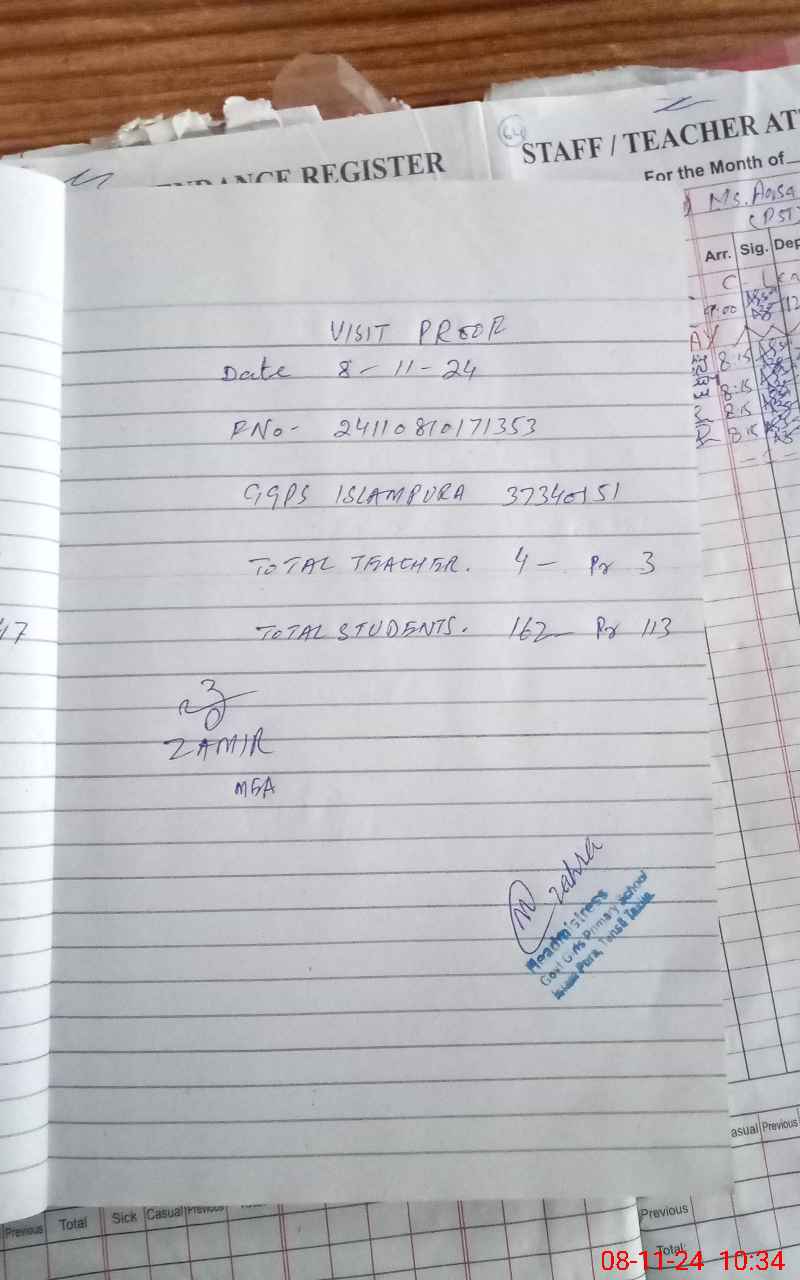 ENDANCE REGISTER
64
STAFF / TEACHER AT
For the Month of
Ms.
(PST)
Arr. Sig. Dep
C - Lea
9:00 12
8:15
8:15
8:15
8:15
VISIT PROOF
Date 8-11-24
RNo- 24110810171353
GGPS ISLAMPURA 37340151
TOTAL TEACHER. 4 - Pr 3
TOTAL STUDENTS. 162 - Pr 113
17
ZAMIR
MEA
zahra
Headmistress
Govt Girls Primary School
Pura, Tehsil
asual Previous
Previous Total Sick Casual Previous Total
Previous
Total:
08-11-24 10:34